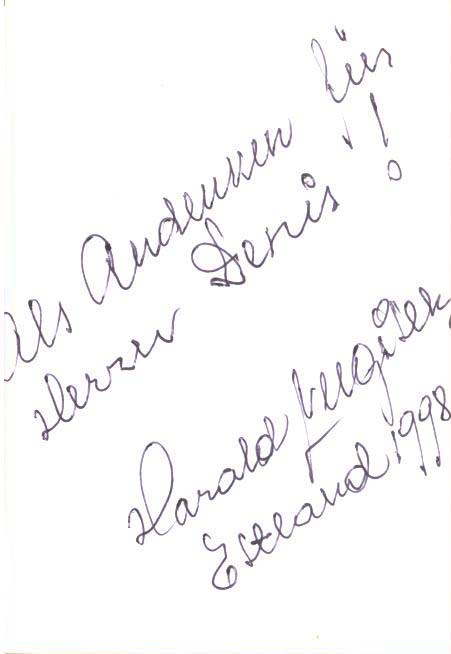 Als Andenken für
Herrn Denis!
Harald Nugiseks
Estland 1998